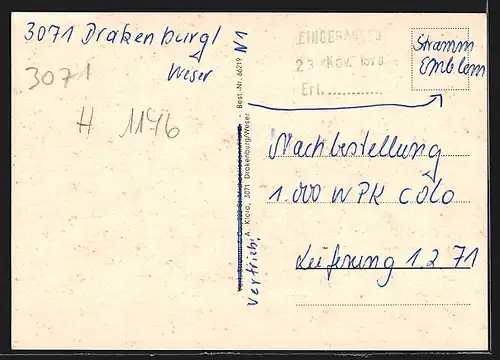 3071 Drakenburg/
Weser
3071
H 1176
N1
Best.-Nr. 66219
A. Kloro, 3071 Drakenburg/Weser
Vertrieb:
EINGEGANGEN
23. Nov. 1970
Erl. ............
Stramm
Emblem
Nachbestellung
1.000 WPK COLO
Lieferung 1.2.71